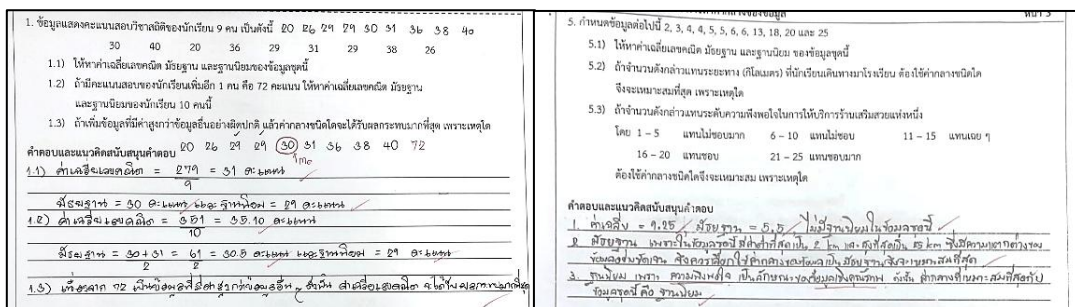 1. ข้อมูลแสดงคะแนนสอบวิชาสถิติของนักเรียน 9 คน เป็นดังนี้ 20 26 29 29 30 31 36 38 40
30 40 20 36 29 31 29 38 26
1.1) ให้หาค่าเฉลี่ยเลขคณิต มัธยฐาน และฐานนิยมของข้อมูลชุดนี้
1.2) ถ้ามีคะแนนสอบของนักเรียนเพิ่มอีก 1 คน คือ 72 คะแนน ให้หาค่าเฉลี่ยเลขคณิต มัธยฐาน
และฐานนิยมของนักเรียน 10 คนนี้
1.3) ถ้าเพิ่มข้อมูลที่มีค่าสูงกว่าข้อมูลอื่นอย่างผิดปกติ แล้วค่ากลางชนิดใดจะได้รับผลกระทบมากที่สุด เพราะเหตุใด
คำตอบและแนวคิดสนับสนุนคำตอบ 20 26 29 29 30 31 36 38 40 72
1.1) ค่าเฉลี่ยเลขคณิต = 279 = 31 คะแนน
9
มัธยฐาน = 30 คะแนน และ ฐานนิยม = 29 คะแนน
1.2) ค่าเฉลี่ยเลขคณิต = 351 = 35.10 คะแนน
10
มัธยฐาน = 30+31 = 61 = 30.5 คะแนน และฐานนิยม = 29 คะแนน
2 2
1.3) เนื่องจาก 72 เป็นข้อมูลที่มีค่าสูงกว่าข้อมูลอื่น ๆ ดังนั้น ค่าเฉลี่ยเลขคณิต จะได้รับผลกระทบมากที่สุด
หน้า 3
5. กำหนดข้อมูลต่อไปนี้ 2, 3, 4, 4, 5, 5, 6, 6, 13, 18, 20 และ 25
5.1) ให้หาค่าเฉลี่ยเลขคณิต มัธยฐาน และฐานนิยม ของข้อมูลชุดนี้
5.2) ถ้าจำนวนดังกล่าวแทนระยะทาง (กิโลเมตร) ที่นักเรียนเดินทางมาโรงเรียน ต้องใช้ค่ากลางชนิดใด
จึงจะเหมาะสมที่สุด เพราะเหตุใด
5.3) ถ้าจำนวนดังกล่าวแทนระดับความพึงพอใจในการให้บริการร้านเสริมสวยแห่งหนึ่ง
โดย 1 – 5 แทนไม่ชอบมาก 6 – 10 แทนไม่ชอบ 11 – 15 แทนเฉย ๆ
16 – 20 แทนชอบ 21 – 25 แทนชอบมาก
ต้องใช้ค่ากลางชนิดใดจึงจะเหมาะสม เพราะเหตุใด
คำตอบและแนวคิดสนับสนุนคำตอบ
1. ค่าเฉลี่ย = 9.25 มัธยฐาน = 5.5 ไม่มีฐานนิยมในข้อมูลชุดนี้
2 มัธยฐาน เพราะในข้อมูลชุดนี้มีค่าต่ำที่สุดเป็น 2 km และสูงที่สุดเป็น 25 km ซึ่งมีความแตกต่างของ
ข้อมูลเป็นมัธยฐานจึงจะเหมาะสมที่สุด
3. ฐานนิยม เพราะ ความพึงพอใจ เป็นลักษณะของข้อมูลเชิงคุณภาพ ดังนั้น ค่ากลางที่เหมาะสมที่สุดกับ
ข้อมูลชุดนี้ คือ ฐานนิยม